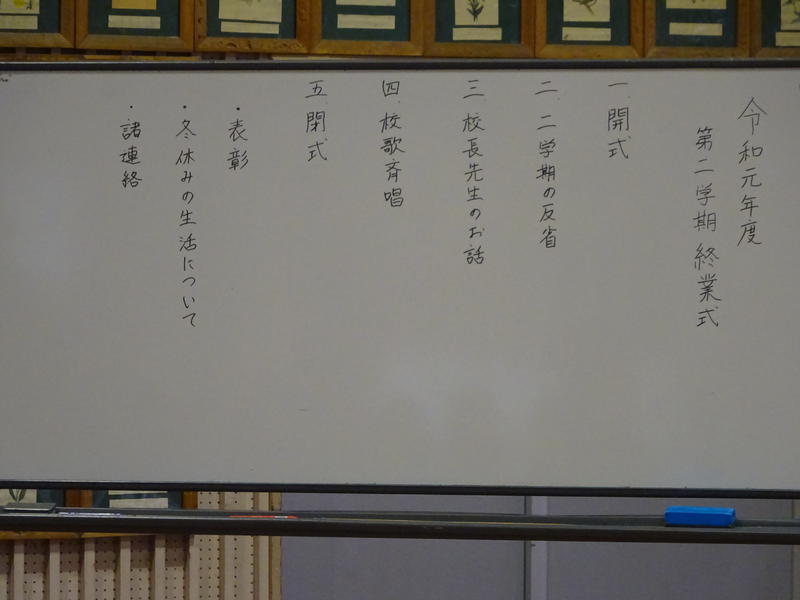 令和元年度
第二学期 終業式
一、開式
二、二学期の反省
三、校長先生のお話
四、校歌斉唱
五、閉式
・表彰
・冬休みの生活について
・諸連絡